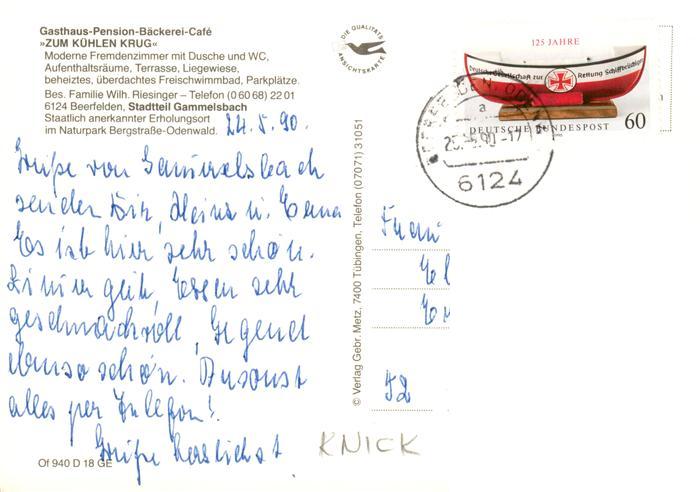 Gasthaus-Pension-Bäckerei-Café
»ZUM KÜHLEN KRUG«
Moderne Fremdenzimmer mit Dusche und WC,
Aufenthaltsräume, Terrasse, Liegewiese,
beheiztes, überdachtes Freischwimmbad, Parkplätze.
Bes. Familie Wilh. Riesinger – Telefon (0 60 68) 22 01
6124 Beerfelden, Stadtteil Gammelsbach
Staatlich anerkannter Erholungsort
im Naturpark Bergstraße-Odenwald.
24.5.90.
Grüße von Gammelsbach
senden Dir, Heinz u. Erna
Es ist hier sehr schön.
Zimmer gut, Essen sehr
geschmackvoll, Gegend
ebenso schön. Ansonst
alles per Telefon!
Grüße herzlichst
Of 940 D 18 GE
DIE QUALITÄTS
ANSICHTSKARTE
© Verlag Gebr. Metz, 7400 Tübingen, Telefon (07071) 31051
125 JAHRE
Deutsche Gesellschaft zur Rettung Schiffbrüchiger
DEUTSCHE BUNDESPOST 60
a
90-17
6124
Frau
52
KNICK